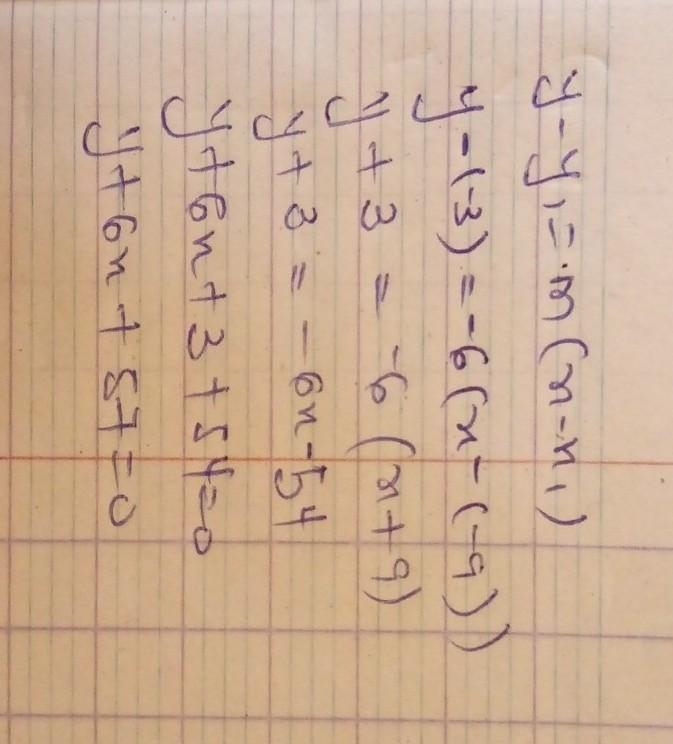 y - y₁ = m(x - x₁)
y - (-3) = -6(x - (-9))
y + 3 = -6(x + 9)
y + 3 = -6x - 54
y + 6x + 3 + 54 = 0
y + 6x + 57 = 0